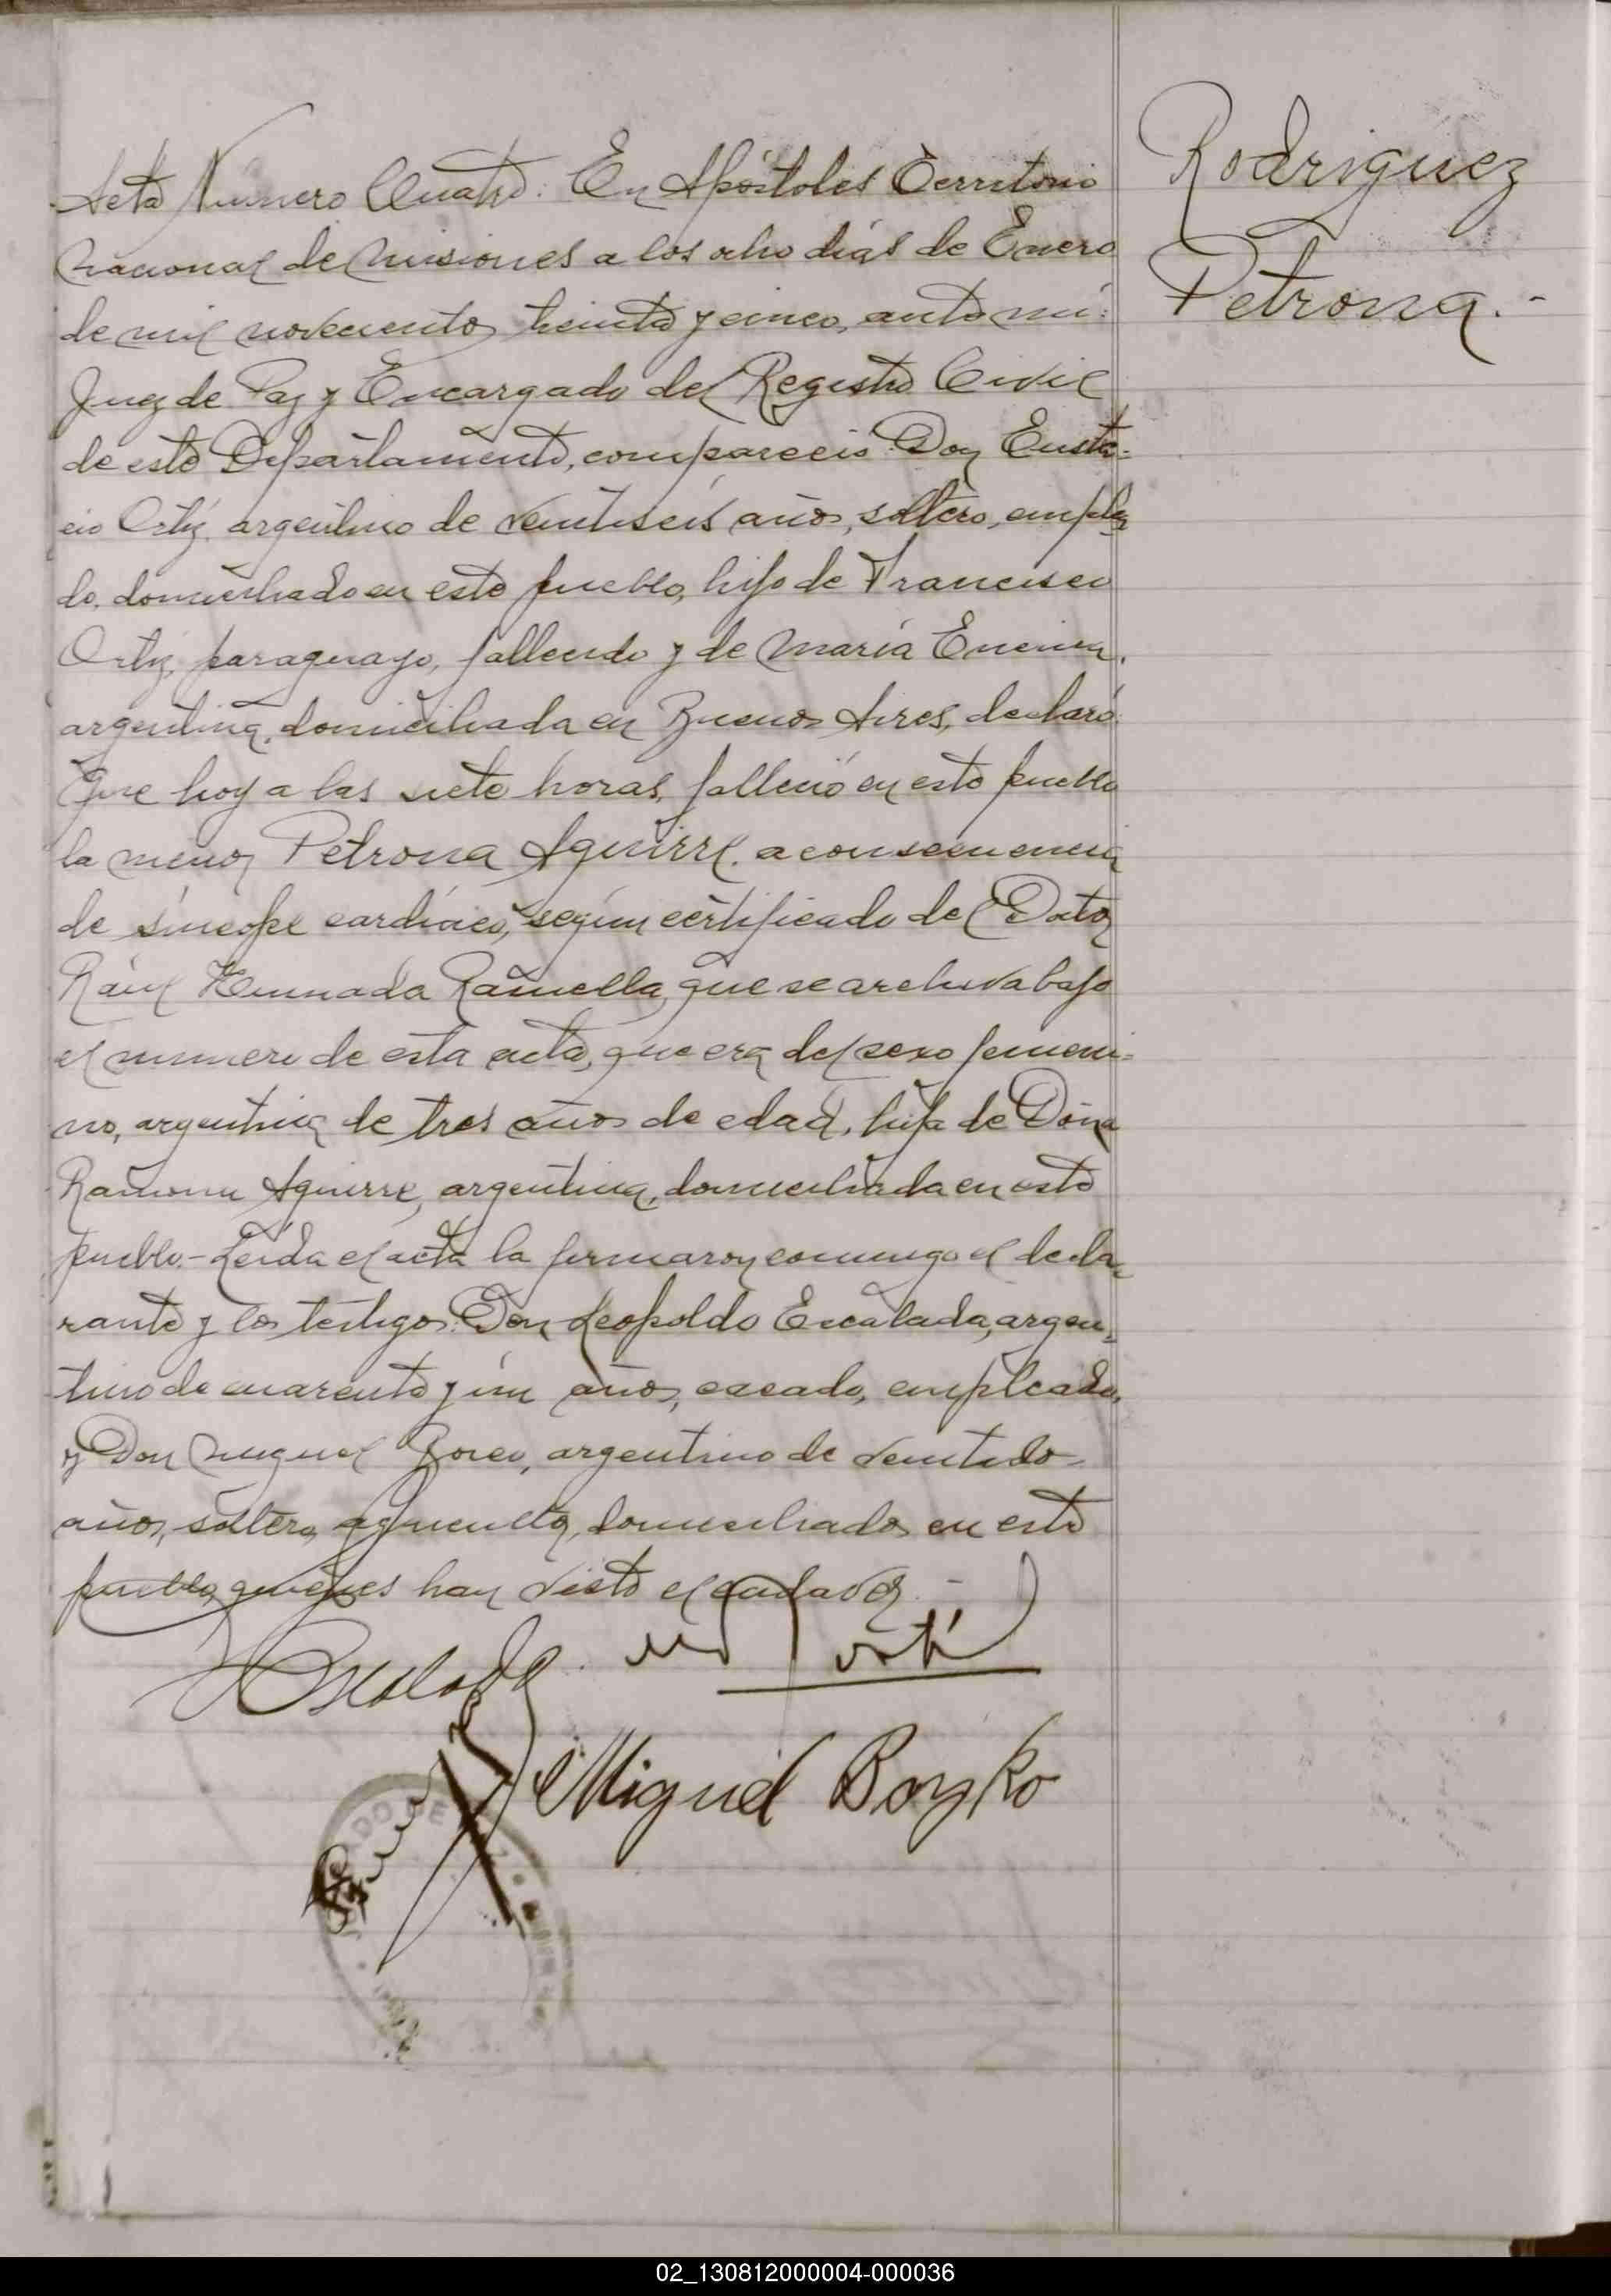 Rodriguez
Petrona.-
Acta Número Cuatro: En Apóstoles Territorio
nacional de Misiones a los ocho días de Enero
de mil novecientos treinta y cinco, ante mí:
Juez de Paz y Encargado del Registro Civil
de este Departamento, compareció Don Eusta-
cio Ortiz, argentino de veintiseis años, soltero, emplea
do, domiciliado en este pueblo, hijo de Francisco
Ortiz, paraguayo, fallecido y de María Encina,
argentina, domiciliada en Buenos Aires, declaró:
Que hoy a las siete horas, falleció en este pueblo
la menor Petrona Aguirre, a consecuencia
de síncope cardíaco, según certificado del Doctor
Raúl Ramella, que se archiva bajo
el numero de esta acta, que era del sexo femeni-
no, argentina de tres años de edad, hija de Doña
Ramona Aguirre, argentina, domiciliada en este
pueblo.- Leída el acta la firmaron conmigo el decla-
rante y los testigos: Don Leopoldo Escalada, argen-
tino de cuarenta y un años, casado, empleado,
y Don Miguel argentino de veintidos
años, soltero, domiciliados en este
pueblo, quienes han visto el cadaver.-
Escalada
Miguel Boyko
02_130812000004-000036